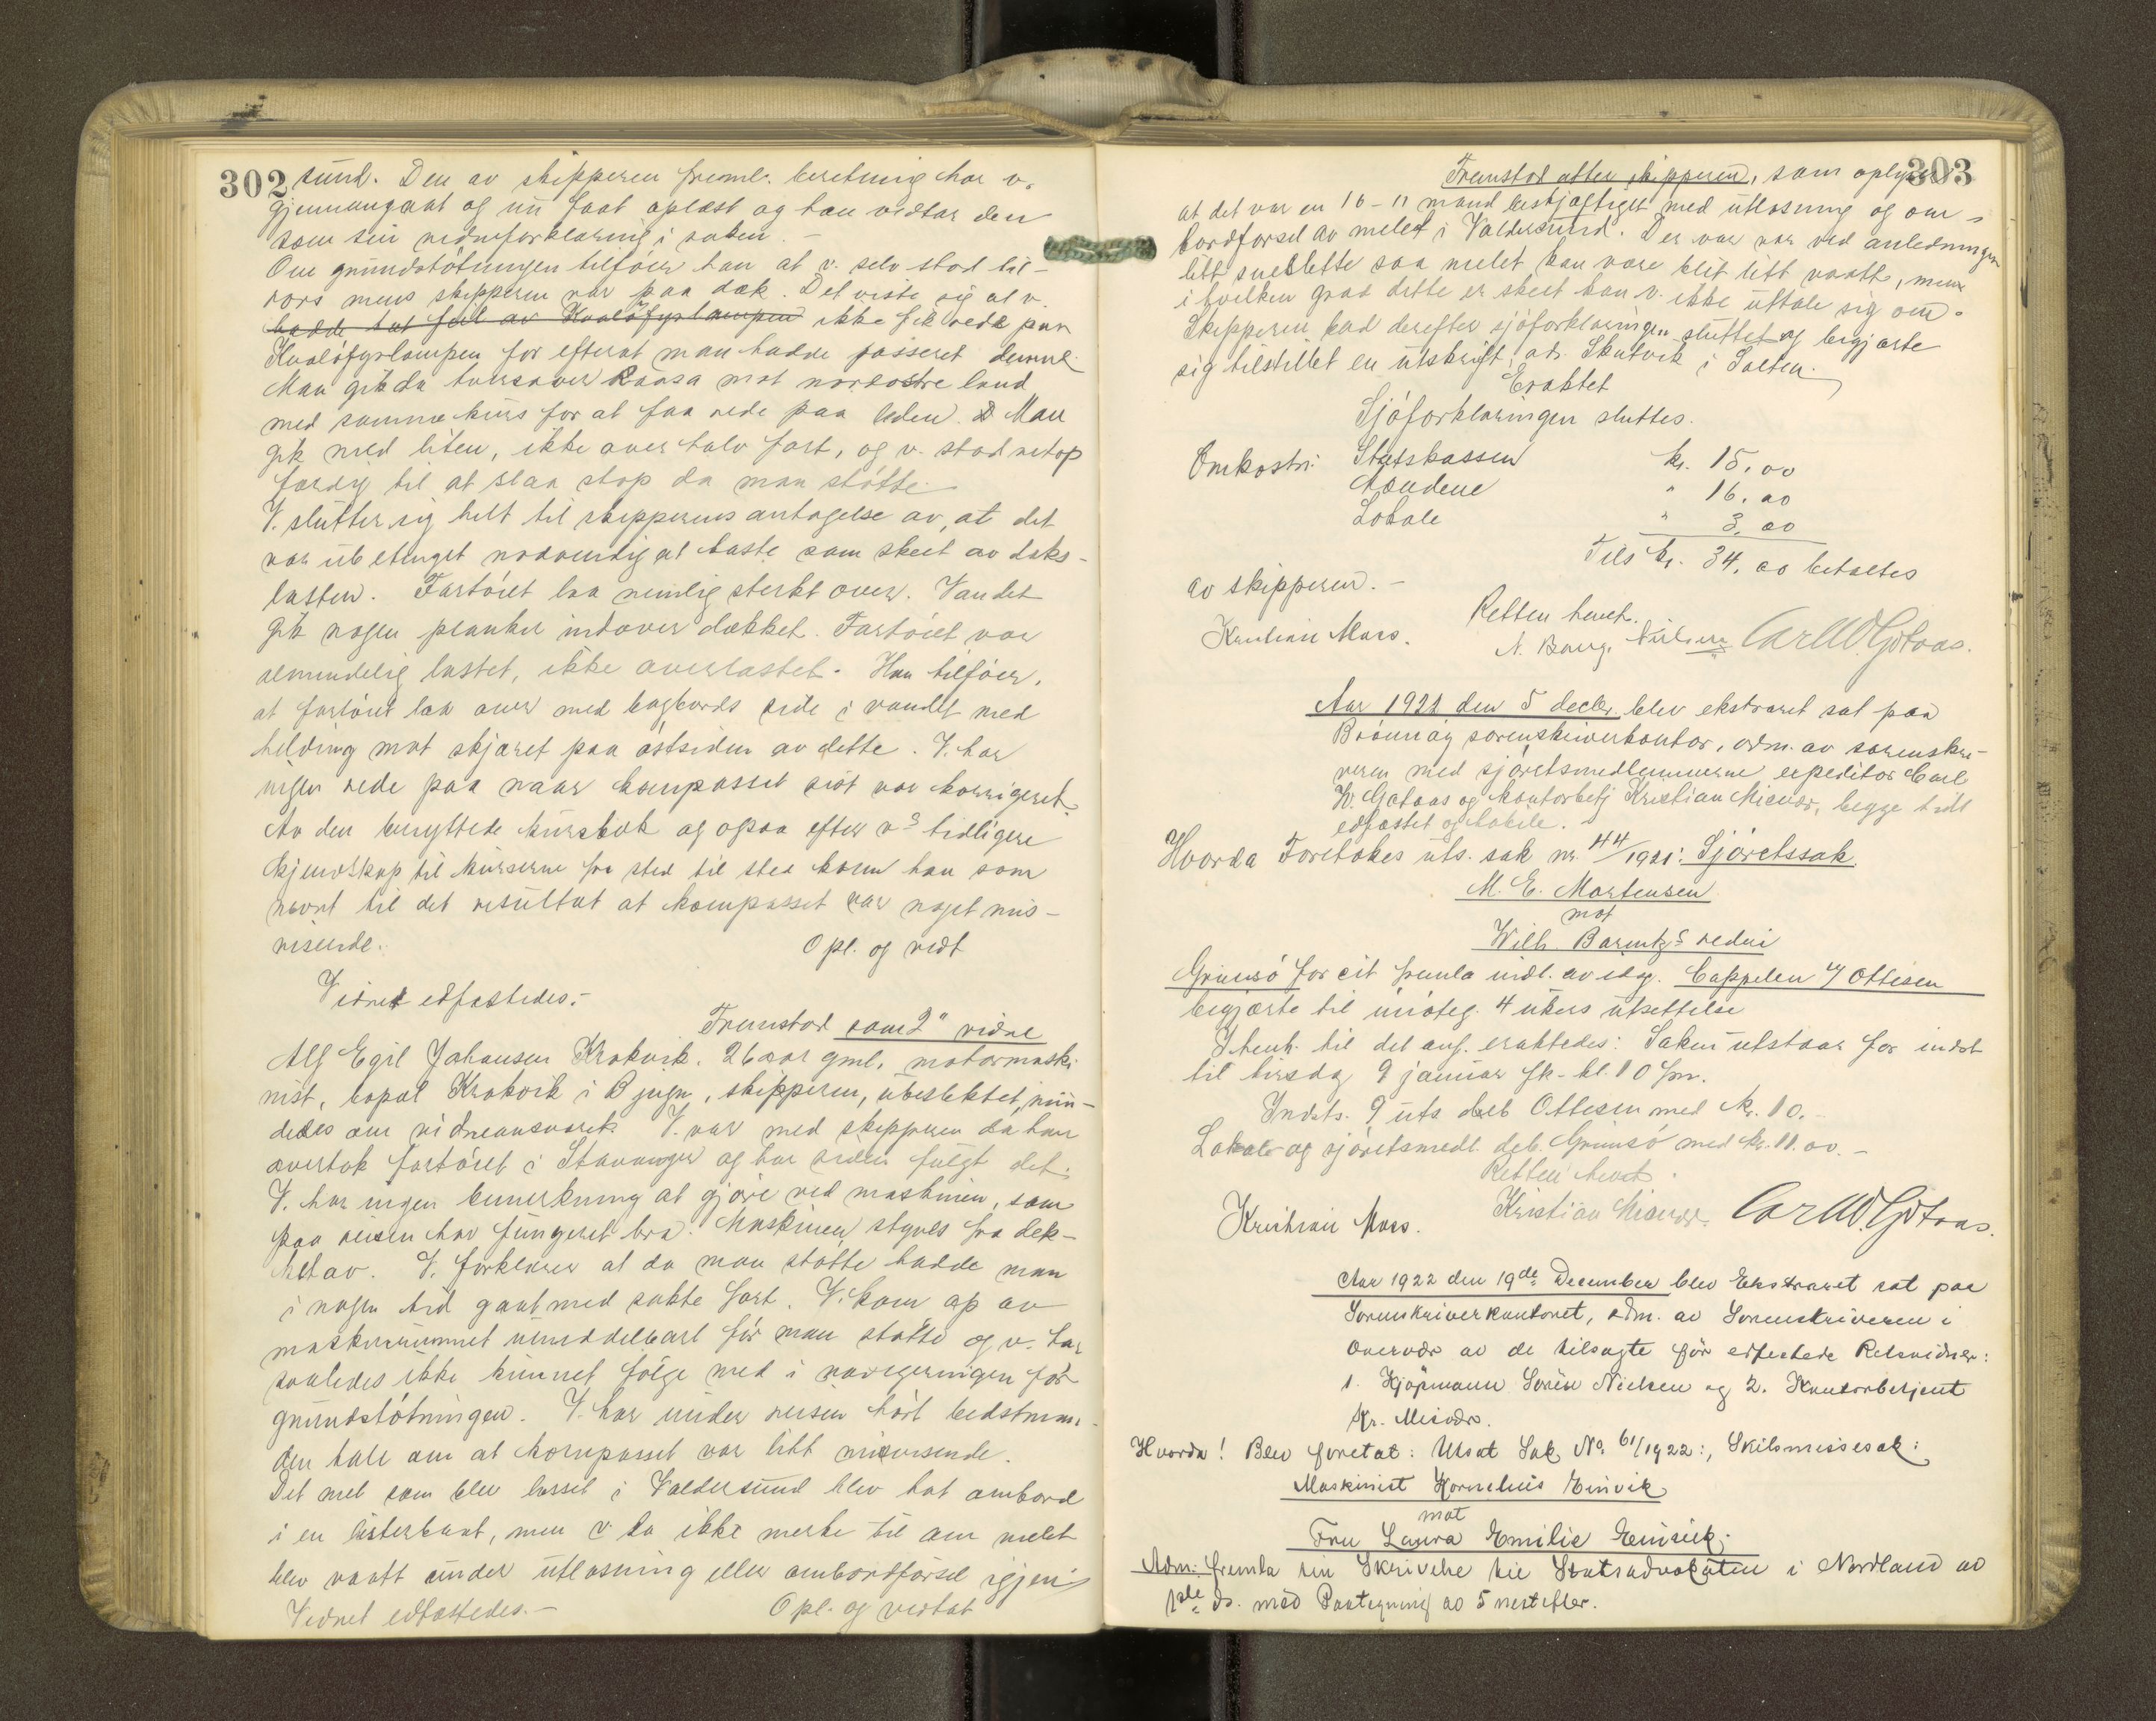 302
sund. Den av skipperen freml. beretning har v.
gjennemgaat og nu faat oplæst og han vedtar den
som sin vidneforklaring i saken. -
Om grundstötningen tilföier han at v. selv stod til-
rors mens skipperen var paa dæk. Det viste sig at v.
hadde tat feil av Kvalöfyrlampen ikke fik rede paa
Kvalöfyrlampen för efterat man hadde passeret denne.
Man gik da tversover Raasa mot nordostre land
med samme kurs for at faa rede paa leden. Man
gik med liten, ikke over halv fart, og v. stod netop
færdig til at slaa stop da man stötte.
V. slutter sig helt til skipperens antagelse av, at det
var ubetinget nödvendig at kaste som skeet av dæks-
lasten. Fartöiet laa nemlig sterkt over. Vandet
gik nogen planker indover dækket. Fartöiet var
almindelig lastet, ikke overlastet. Han tilföier,
at fartöiet laa over med bagbords side i vandet med
helding mot skjæret paa östsiden av dette. V. har
ingen rede paa naar kompasset sist var korrigeret.
Av den benyttede kursbok og ogsaa efter v's tidligere
kjendskap til kurserne fra sted til sted kom han som
nævnt til det resultat at kompasset var noget mis-
visende. Opl. og vedt
Vidnet edfæstedes.-
Fremstod som 2" vidne
Alf Egil Johansen Krakvik. 26 aar gml. motormaski-
nist, bopæl Krakvik i Bjugn, skipperen, ubeslektet, min-
dedes om vidneansvaret. V. var med skipperen da han
overtok fartöiet i Stavanger og har siden fulgt det.
V. har ingen bemerkning at gjöre ved maskinen, som
paa reisen har fungeret bra. Maskinen styres fra dek-
ket av. V. forklarer at da man stötte hadde man
i nogen tid gaat med sakte fart. V. kom op av
maskinrummet umiddelbart för man stötte og v. har
saaledes ikke kunnet fölge med i navigeringen för
grundstötningen. V. har under reisen hört bedstman-
den tale om at kompasset var litt misvisende.
Det mel som blev losset i Valdersund blev tat ombord
i en listerbaat, men v. la ikke merke til om melet
blev vaatt under utlosning eller ombordförsel igjen.
Vidnet edfæstedes.- Opl. og vedtat
303
Fremstod atter skipperen, som oplyser
at det var en 10-11 mand beskjæftiget med utlosning og om-
bordförsel av melet i Valdersund. Der var ved anledningen
litt sneblette saa melet kan være blit litt vaatt, men
i hvilken grad dette er skeet kan v. ikke uttale sig om.
Skipperen bad derefter sjöforklaringen sluttet og begjærte
sig tilstillet en utskrift, adr. Skutvik i Salten.
Eraktet
Sjöforklaringen sluttes.
Omkostn: Statskassen kr. 15.00
Mændene " 16.00
Lokale " 3.00
Tils kr. 34.00 betaltes
av skipperen.-
Retten hævet.
Kristian Moss. N. Bang. Nielsen Carl W. Götaas.
Aar 1921 den 5 decbr. blev ekstraret sat paa
Brönnöy sorenskriverkontor, adm. av sorenskri-
veren med sjöretsmedlemmerne expeditör Carl
W. Götaas og kontorbetj Kristian Misvær, begge tidl
edfæstet og habile.
Hvorda Foretokes uts. sak nr. 44/1921: Sjöretssak
M. E. Mortensen
mot
Wilh. Barentz's rederi
Grimsö for cit fremla indl. av idag. Cappelen v/ Ottesen
begjærte til imöteg. 4 ukers utsettelse
I henh. til det anf. eraktedes: Saken utstaar for indst
til tirsdag 9 januar fk- kl. 10 fm.
Indsts. 9 uts deb Ottesen med kr. 10.-
Lokale og sjöretsmedl. deb. Grimsö med kr. 11.00.-
Retten hævet.
Kristian Moss. Kristian Misvær. Carl W. Götaas.
Aar 1922 den 19de December blev Ekstraret sat paa
Sorenskriverkontoret, adm. av Sorenskriveren i
Overvær av de tilsagte för edfestede Retsvidner:
1. Kjöpmann Sören Nielsen og 2. Kontorbetjent
Kr. Misvær.
Hvorda! Blev foretat: Utsat Sak No 61/1922:, Skilsmissesak:
Maskinist Kornelius Einvik
mot
Fru Laura Emilie Einvik.
Adm: fremla sin Skrivelse til Statsadvokaten i Nordland av
1ste ds. med Paategning av 5 nestefter.